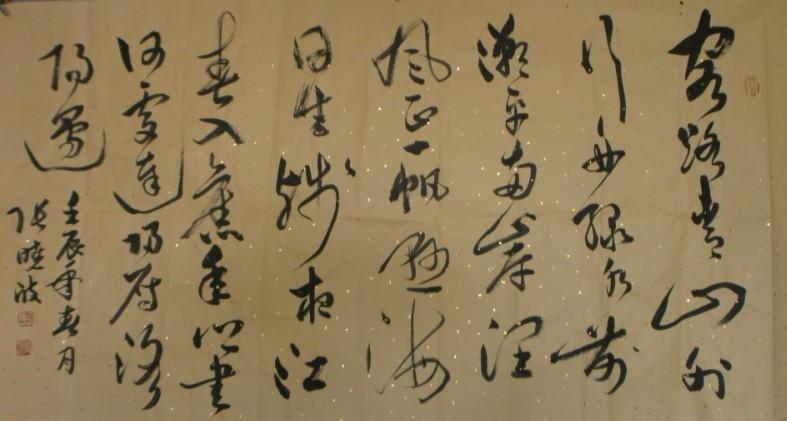 客路青山外
行舟綠水前
潮平兩岸濶
風正一帆懸海
日生殘夜江
春入舊年鄉書
何處達歸雁洛
陽邊
壬辰年春月
張曉波